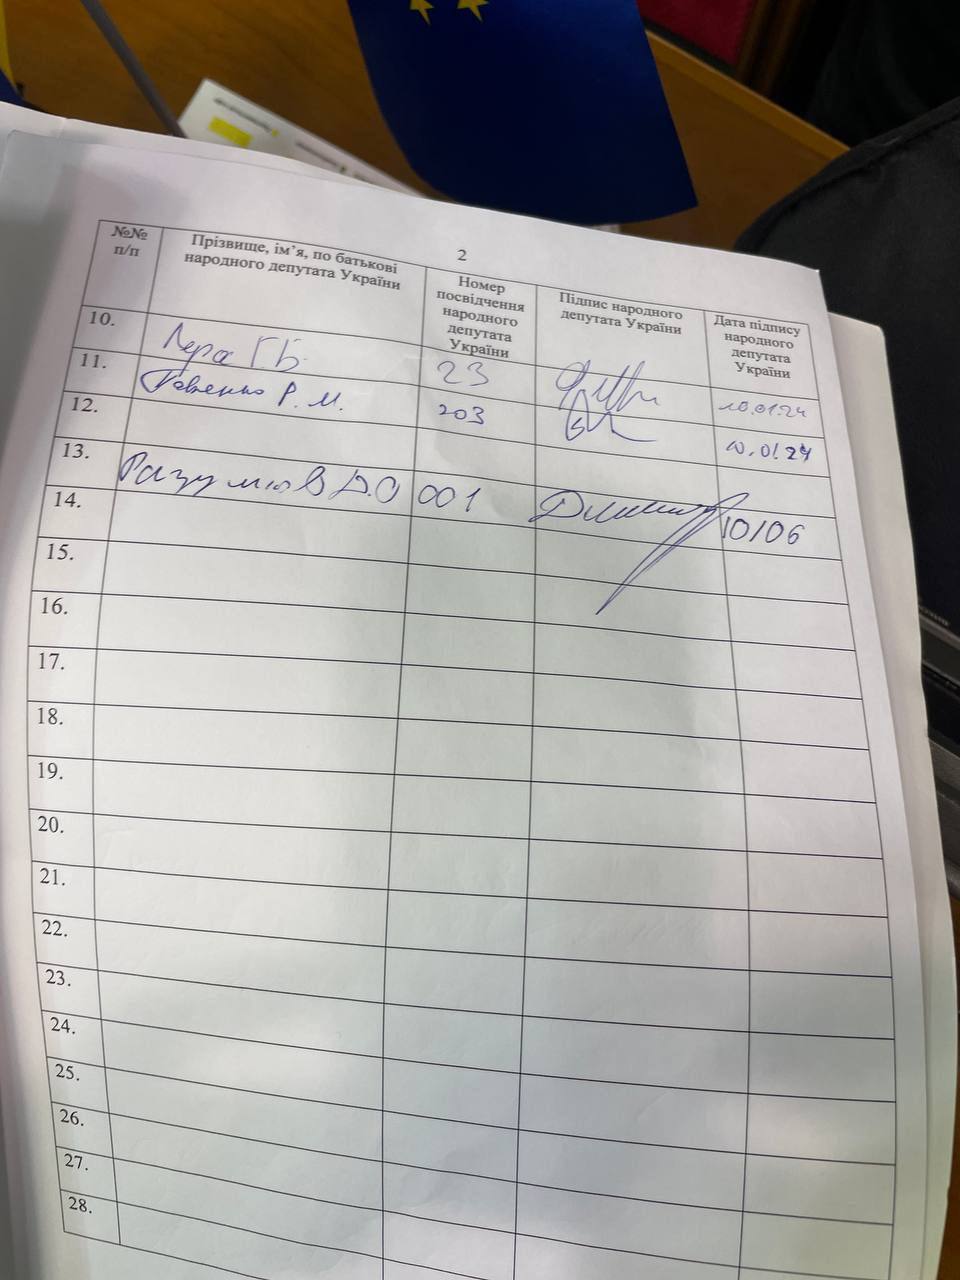 2
№№ п/п
Прізвище, ім’я, по батькові народного депутата України
Номер посвідчення народного депутата України
Підпис народного депутата України
Дата підпису народного депутата України
10. Лера Г.Б. 23 10.01.24
11. Р.М. 203 10.01.24
12.
13. Разумков Д.О 001 10/06
14.
15.
16.
17.
18.
19.
20.
21.
22.
23.
24.
25.
26.
27.
28.